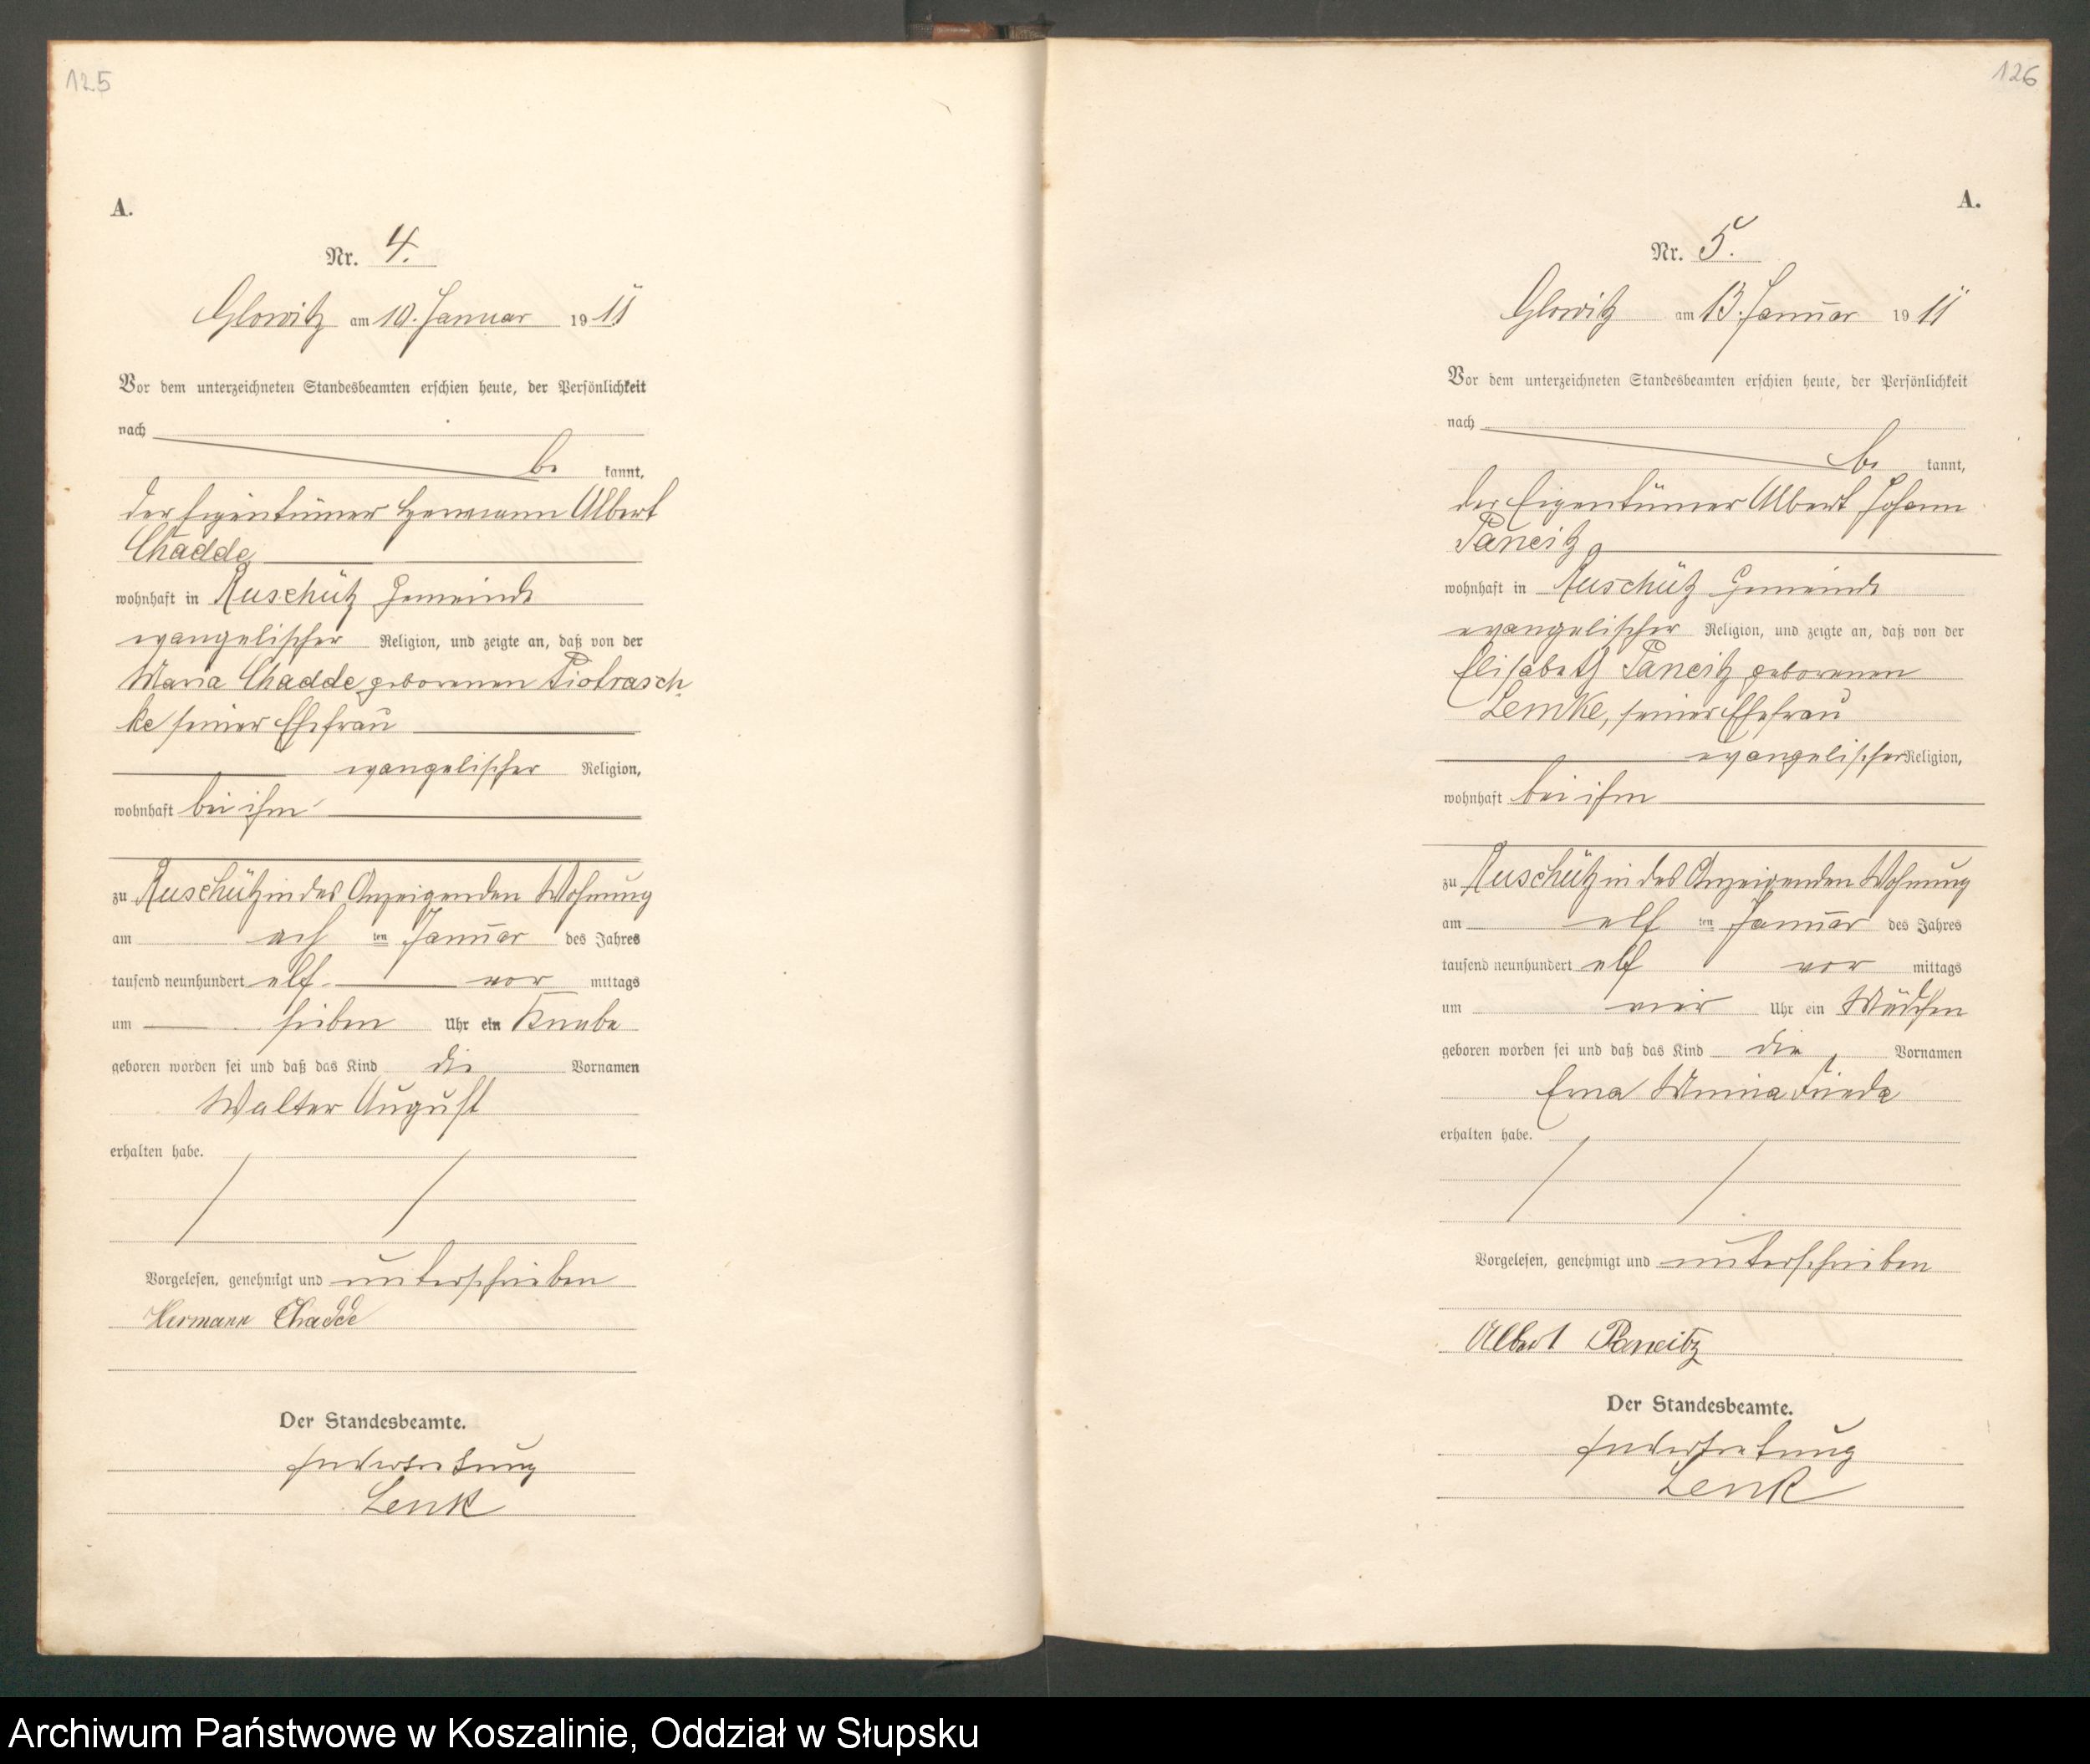 125
A.
Nr. 4.
Glowitz am 10. Januar 1911
Vor dem unterzeichneten Standesbeamten erschien heute, der Persönlichkeit
nach
be kannt,
der Eigentümer Hermann Albert
Chadde
wohnhaft in Ruschütz Gemeinde
evangelischer Religion, und zeigte an, daß von der
Maria Chadde geborenen Piotrasch
ke seiner Ehefrau
evangelischer Religion,
wohnhaft bei ihm
zu Ruschütz in des Anzeigenden Wohnung
am ach ten Januar des Jahres
tausend neunhundert elf vor mittags
um sieben Uhr ein Knabe
geboren worden sei und daß das Kind die Vornamen
Walter August
erhalten habe.
Vorgelesen, genehmigt und unterschrieben
Hermann Chadde
Der Standesbeamte.
In Vertretung
Lenk
126
A.
Nr. 5.
Glowitz am 13. Januar 1911
Vor dem unterzeichneten Standesbeamten erschien heute, der Persönlichkeit
nach
be kannt,
der Eigentümer Albert Johann
Paneitz
wohnhaft in Ruschütz Gemeinde
evangelischer Religion, und zeigte an, daß von der
Elisabeth Paneitz geborenen
Lemke, seiner Ehefrau
evangelischer Religion,
wohnhaft bei ihm
zu Ruschütz in des Anzeigenden Wohnung
am elf ten Januar des Jahres
tausend neunhundert elf vor mittags
um vier Uhr ein Mädchen
geboren worden sei und daß das Kind die Vornamen
Erna Minna Frieda
erhalten habe.
Vorgelesen, genehmigt und unterschrieben
Albert Paneitz
Der Standesbeamte.
In Vertretung
Lenk
Archiwum Państwowe w Koszalinie, Oddział w Słupsku